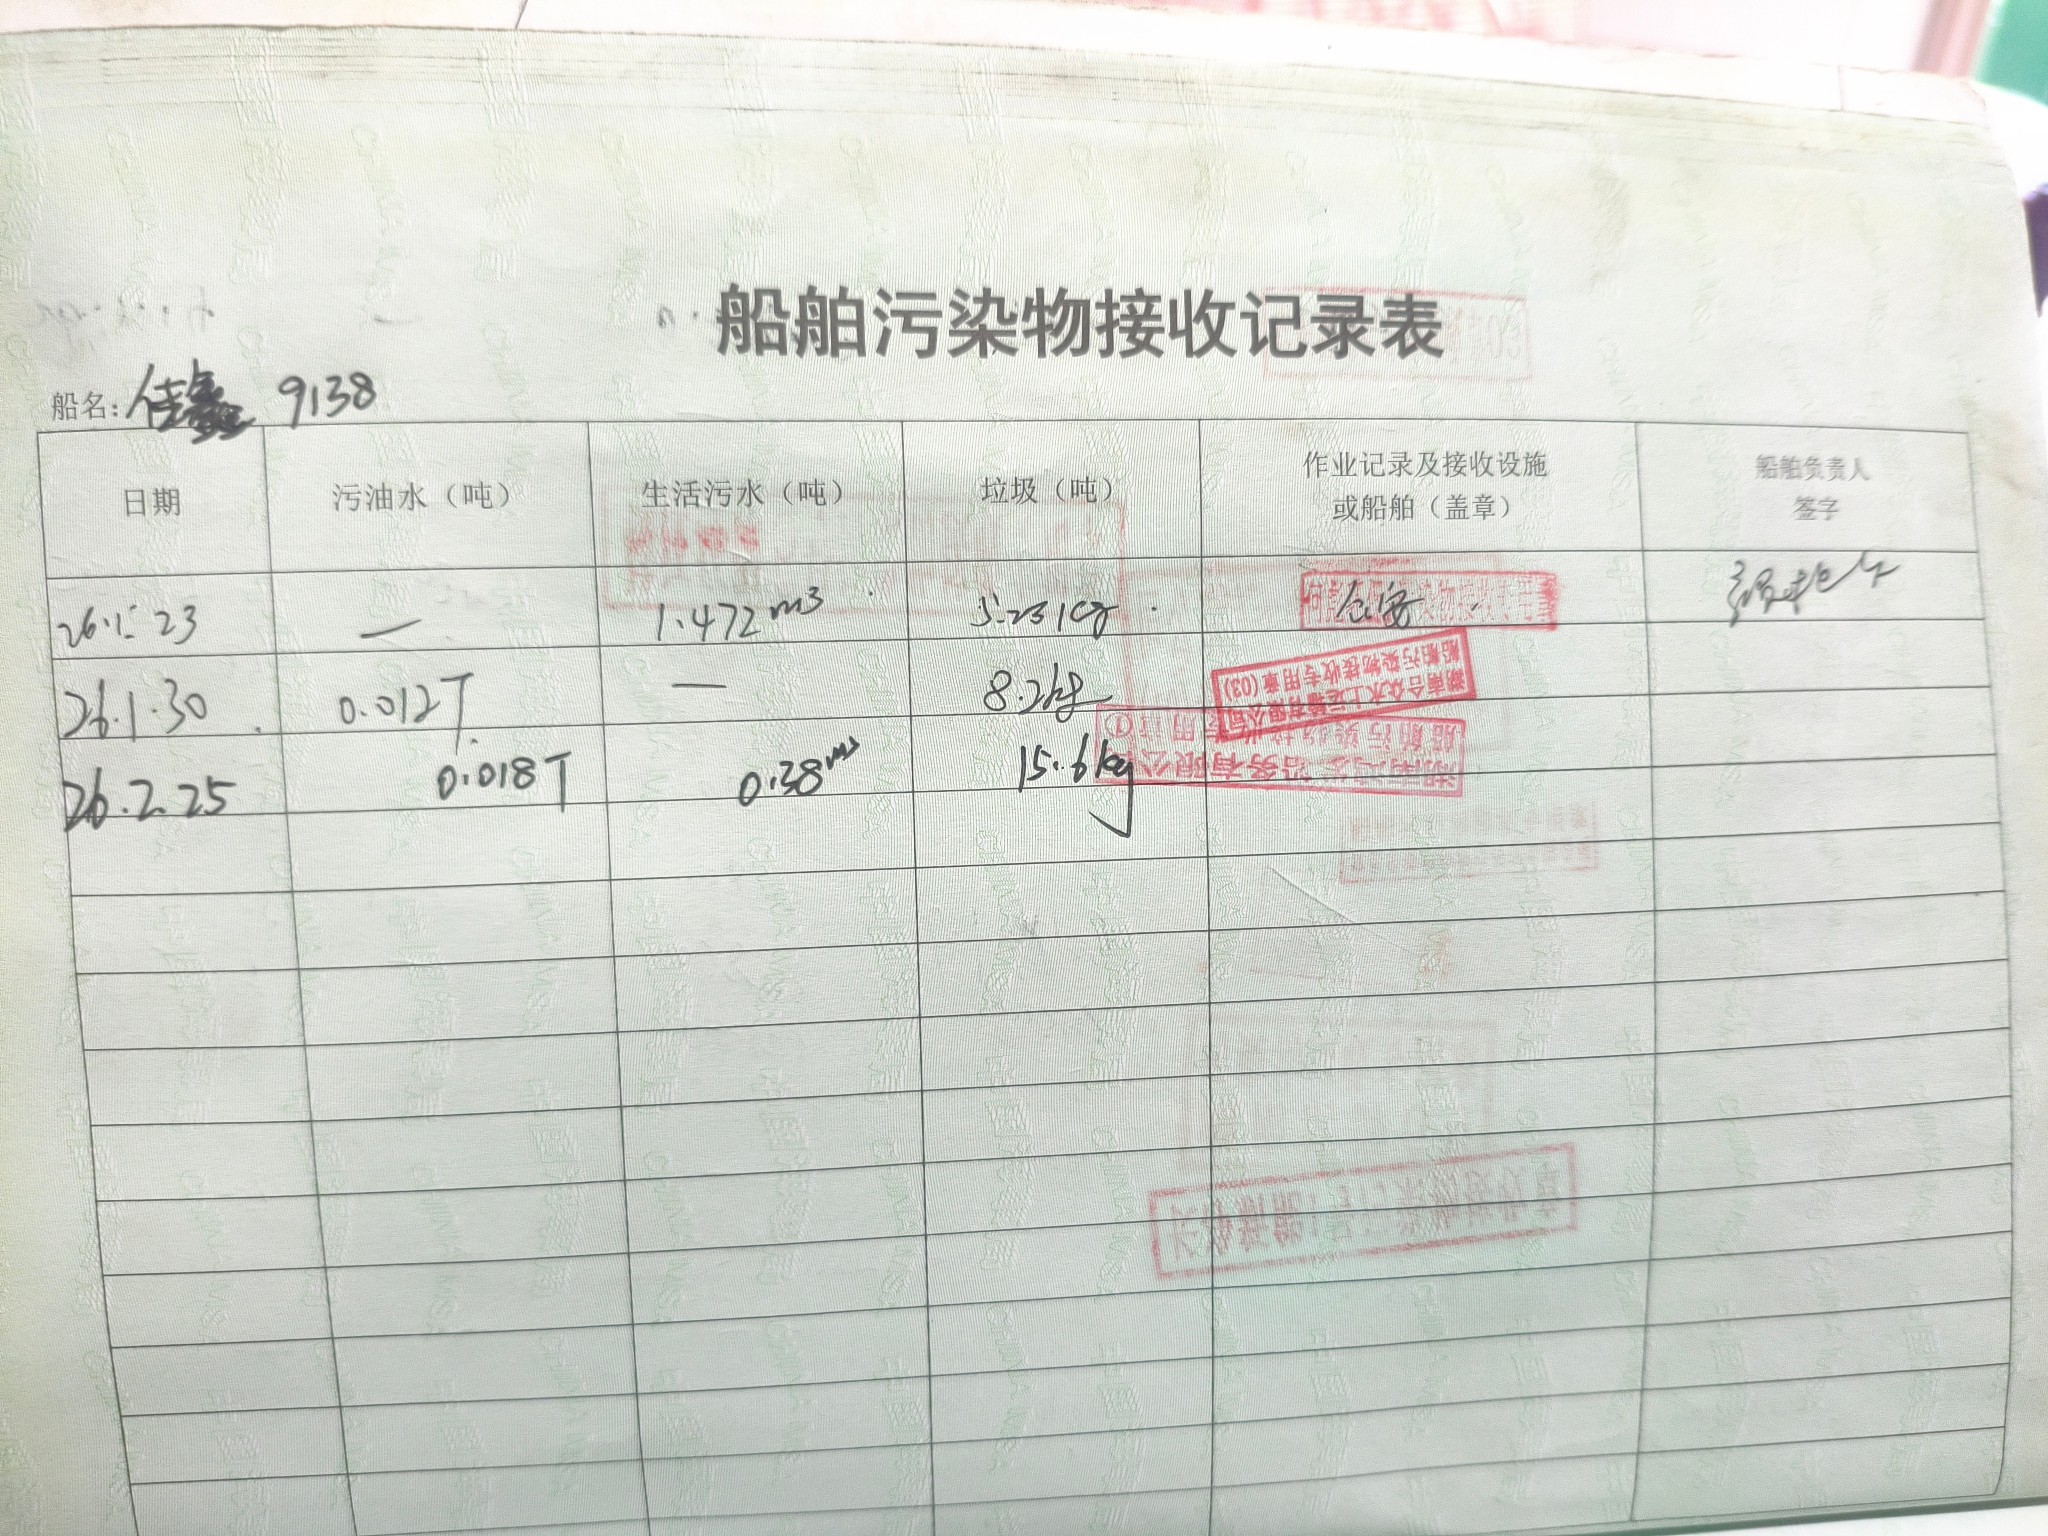 船舶污染物接收记录表
船名: 佳鑫 9138
日期 污油水（吨） 生活污水（吨） 垃圾（吨） 作业记录及接收设施或船舶（盖章） 船舶负责人签字
26.1.23 — 1.472m3 5.23kg
26.1.30 0.012T — 8.2kg 湖南合众水上运输有限公司 船舶污染物接收专用章(03)
26.2.25 0.018T 0.38m3 15.6kg 船舶污染物接收专用章①